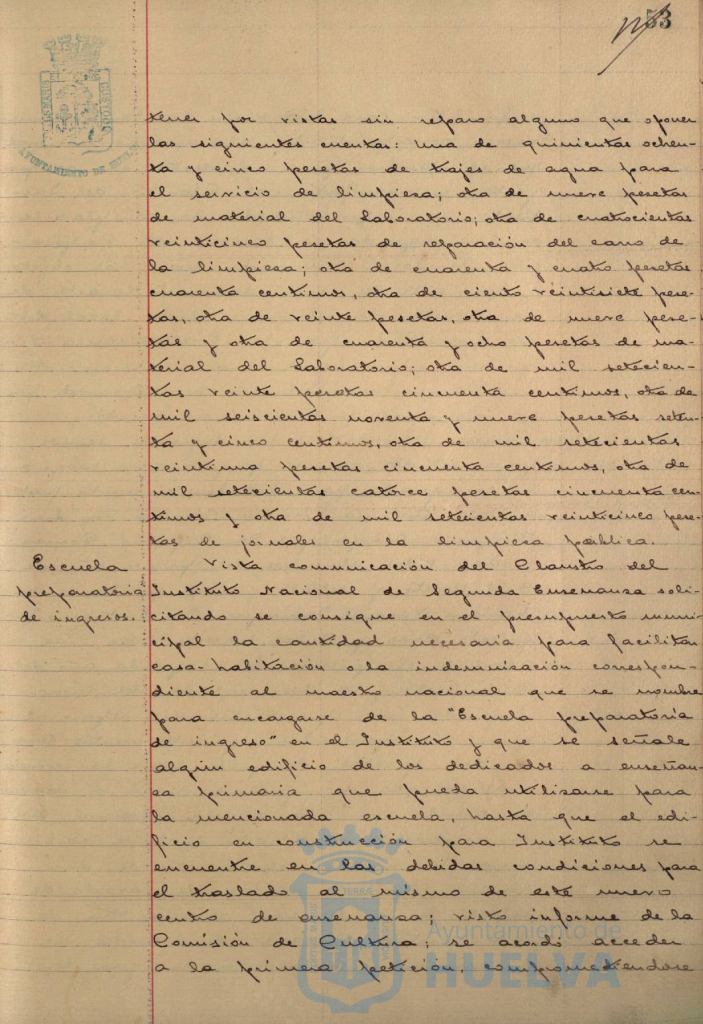 53
AYUNTAMIENTO DE HUELVA
tener por vistas sin reparo alguno que oponer
las siguientes cuentas: una de quinientas ochen-
ta y cinco pesetas de trajes de agua para
el servicio de limpiesa; otra de nueve pesetas
de material del Laboratorio; otra de cuatrocientas
veinticinco pesetas de reparación del carro de
la limpiesa; otra de cuarenta y cuatro pesetas
cuarenta centimos, otra de ciento veintisiete pese-
tas, otra de veinte pesetas, otra de nueve pese-
tas y otra de cuarenta y ocho pesetas de ma-
terial del Laboratorio; otra de mil setecien-
tas veinte pesetas cincuenta centimos, otra de
mil seiscientas noventa y nueve pesetas seten-
ta y cinco centimos, otra de mil setecientas
veintiuna pesetas cincuenta centimos, otra de
mil setecientas catorce pesetas cincuenta cen-
timos y otra de mil setecientas veinticinco pese-
tas de jornales en la limpiesa pública.
Escuela
preparatoria
de ingresos.
Vista comunicación del Claustro del
Instituto Nacional de Segunda Enseñanza soli-
citando se consigne en el presupuesto muni-
cipal la cantidad necesaria para facilitar
casa-habitación o la indemnización correspon-
diente al maestro nacional que se nombre
para encargarse de la "Escuela preparatoria
de ingreso" en el Instituto y que se señale
algún edificio de los dedicados a enseñan-
za primaria que pueda utilizarse para
la mencionada escuela, hasta que el edi-
ficio en construcción para Instituto se
encuentre en las debidas condiciones para
el traslado al mismo de este nuevo
centro de enseñanza; visto informe de la
Comisión de Cultura; se acordó acceder
a la primera petición, comprometiendose
Ayuntamiento de
HUELVA